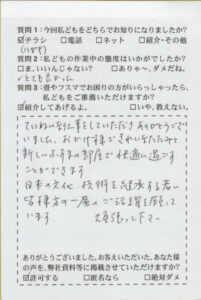 質問1:今回私どもをどちらでお知りになりましたか?
☑チラシ □電話 □ネット □紹介・その他
(いがや)
質問2:私どもの作業中の態度はいかがでしたか?
□ま、いいんじゃない? □ありゃ~、ダメだね。
☑とても良かった
質問3:畳やフスマでお困りの方がいらっしゃったら、
私どもをご推薦いただけますか?
☑紹介してあげるよ。 □いや、教えない。
ていねいな仕事をしていただきありがとうござい
ました。おかげ様できれいなたたみで
新しい部屋で快適に過ごす
ことができます
日本の文化、技術を継承する若い
皆様方の一層のご活躍を願って
います。 頑張って下さい
ありがとうございました。お答えいただいた、あなた様
の声を、弊社資料等に掲載させていただけますか?
☑許可する □匿名なら □絶対ダメ